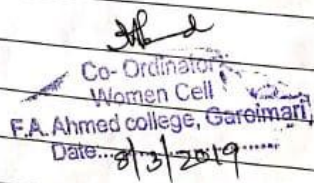 Co-Ordinator
Women Cell
F.A. Ahmed college, Garoimari,
Date....8/3/2019........